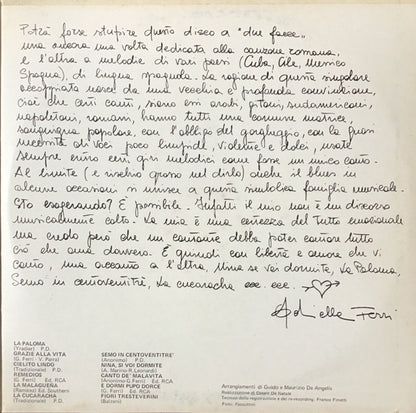 Potrà forse stupire questo disco a "due facce„
una ancora una volta dedicata alla canzone romana,
e l'altra a melodie di vari paesi (Cuba, Cile, Messico
Spagna), di lingua spagnola. La ragione di questa singolare
accoppiata nasce da una vecchia e profonda convinzione,
cioè che certi canti, siano essi arabi, gitani, sudamericani,
napoletani, romani, hanno tutti una comune matrice,
sanguigna popolare, con l'obbligo del gorgheggio, con la quasi
necessità di voci poco limpide, violente e dolci, usate
sempre entro certi giri melodici come fosse un unico canto.
Al limite (e rischio grosso nel dirlo) anche il blues in
alcune occasioni si unisce a questa simbolica famiglia musicale.
Sto esagerando? È possibile. Infatti il mio non è un discorso
musicalmente colto. La mia è una certezza del tutto emozionale
ma credo però che un cantante debba poter cantare tutto
ciò che ama davvero. E quindi con libertà e amore che vi
canto, una accanto a l'altra, Nina se voi dormite, La Paloma,
Semo in centoventitré, La cucaracha ecc. ecc.
Gabriella Ferri
LA PALOMA
(Yradier) P.D.
GRAZIE ALLA VITA
(G. Ferri - V. Parra)
CIELITO LINDO
(Tradizionale) P.D.
REMEDIOS
(G. Ferri) Ed. RCA
LA MALAGUEÑA
(Ramirez) Ed. Southern
LA CUCARACHA
(Tradizionale) P.D.
SEMO IN CENTOVENTITRE'
(Anonimo) P.D.
NINA, SI VOI DORMITE
(A. Marino-R. Leonardi)
CANTO DE' MALAVITA
(Anonimo-G. Ferri) Ed. RCA
E DORMI PUPO DORCE
(G. Ferri) Ed. RCA
FIORI TRESTEVERINI
(Balzani)
Arrangiamenti di Guido e Maurizio De Angelis
Realizzazione di Cesare De Natale
Tecnico della registrazione e del re-recording: Franco Finetti